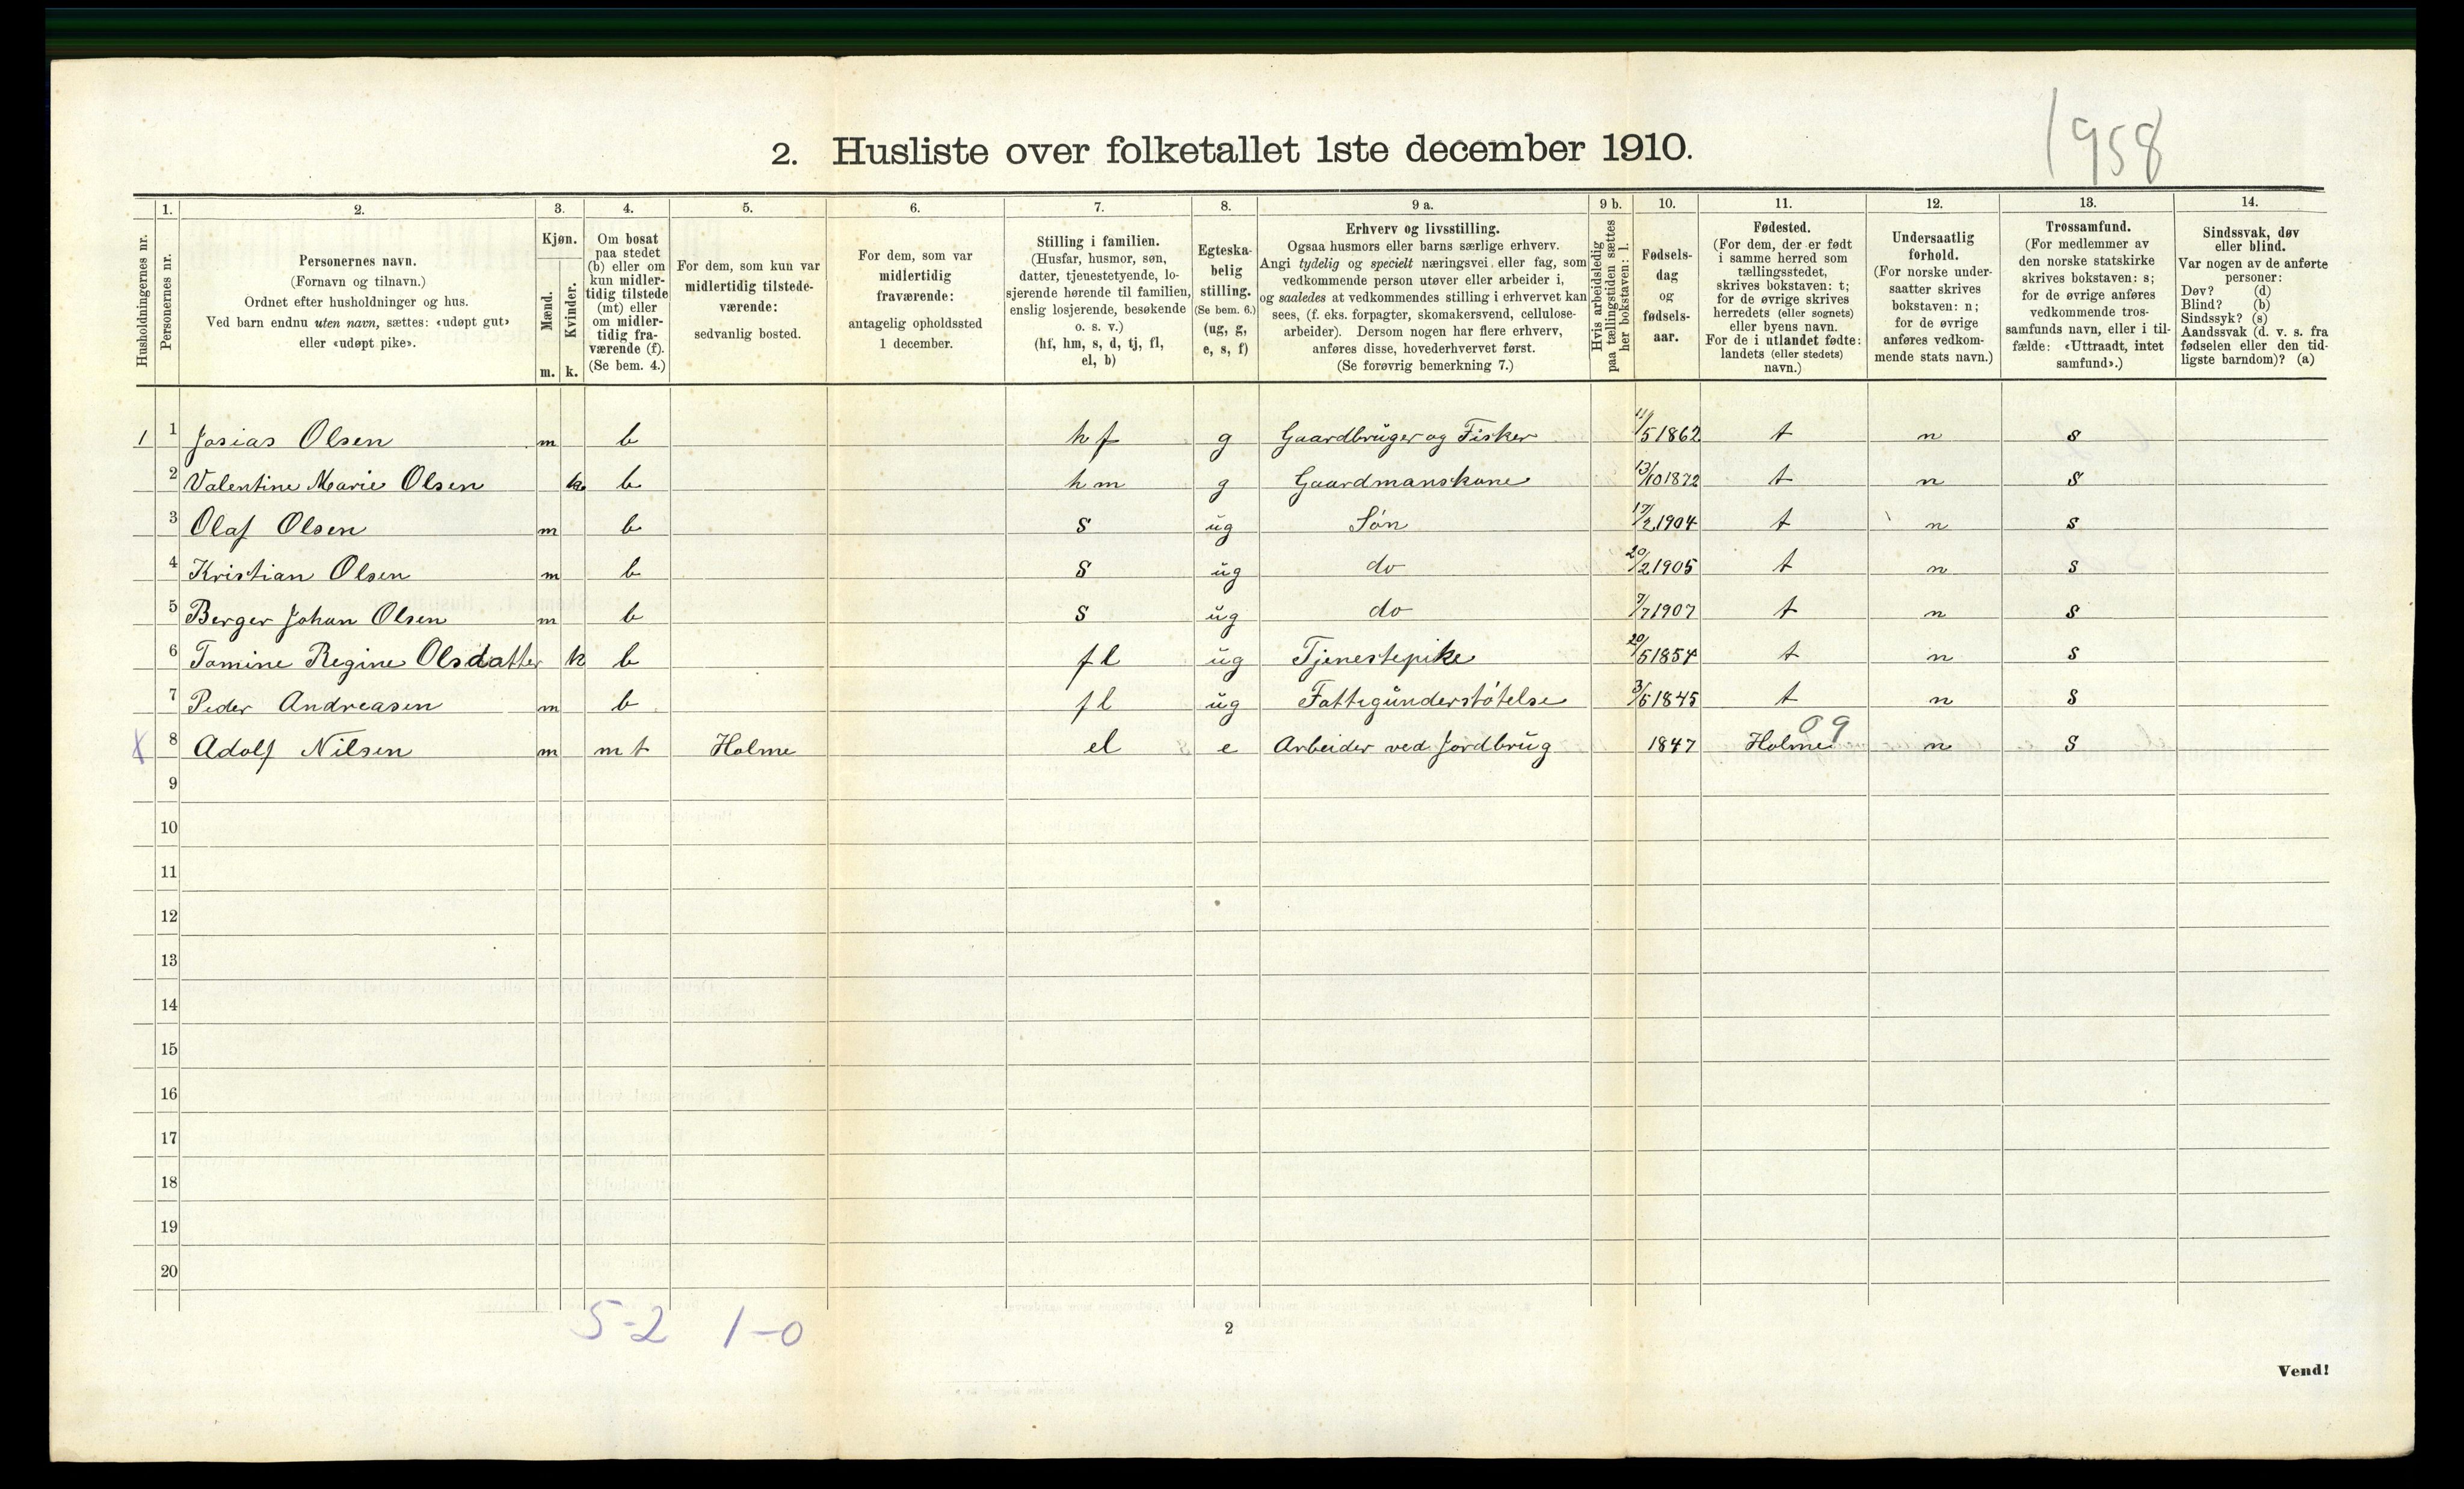 1958
2. Husliste over folketallet 1ste december 1910.
Husholdningernes nr.
1.
Personernes nr.
2.
Personernes navn.
(Fornavn og tilnavn.)
Ordnet efter husholdninger og hus.
Ved barn endnu uten navn, sættes: «udøpt gut»
eller «udøpt pike».
3.
Kjøn.
Mænd.
Kvinder.
m. k.
4.
Om bosat
paa stedet
(b) eller om
kun midler-
tidig tilstede
(mt) eller
om midler-
tidig fra-
værende (f).
(Se bem. 4.)
5.
For dem, som kun var
midlertidig tilstede-
værende:
sedvanlig bosted.
6.
For dem, som var
midlertidig
fraværende:
antagelig opholdssted
1 december.
7.
Stilling i familien.
(Husfar, husmor, søn,
datter, tjenestetyende, lo-
sjerende hørende til familien,
enslig losjerende, besøkende
o. s. v.)
(hf, hm, s, d, tj, fl,
el, b)
8.
Egteska-
belig
stilling.
(Se bem. 6.)
(ug, g,
e, s, f)
9 a.
Erhverv og livsstilling.
Ogsaa husmors eller barns særlige erhverv.
Angi tydelig og specielt næringsvei eller fag, som
vedkommende person utøver eller arbeider i,
og saaledes at vedkommendes stilling i erhvervet kan
sees, (f. eks. forpagter, skomakersvend, cellulose-
arbeider). Dersom nogen har flere erhverv,
anføres disse, hovederhvervet først.
(Se forøvrig bemerkning 7.)
9 b.
Hvis arbeidsledig
paa tællingstiden sættes
her bokstaven: l.
10.
Fødsels-
dag
og
fødsels-
aar.
11.
Fødested.
(For dem, der er født
i samme herred som
tællingsstedet,
skrives bokstaven: t;
for de øvrige skrives
herredets (eller sognets)
eller byens navn.
For de i utlandet fødte:
landets (eller stedets)
navn.)
12.
Undersaatlig
forhold.
(For norske under-
saatter skrives
bokstaven: n;
for de øvrige
anføres vedkom-
mende stats navn.)
13.
Trossamfund.
(For medlemmer av
den norske statskirke
skrives bokstaven: s;
for de øvrige anføres
vedkommende tros-
samfunds navn, eller i til-
fælde: «Uttraadt, intet
samfund».)
14.
Sindssvak, døv
eller blind.
Var nogen av de anførte
personer:
Døv? (d)
Blind? (b)
Sindssyk? (s)
Aandssvak (d. v. s. fra
fødselen eller den tid-
ligste barndom)? (a)
1 1 Josias Olsen m b hf g Gaardbruger og Fisker 11/5 1862 t n s
2 Valentine Marie Olsen k b hm g Gaardmanskone 13/10 1872 t n s
3 Olaf Olsen m b s ug Søn 17/2 1904 t n s
4 Kristian Olsen m b s ug do 20/2 1905 t n s
5 Berger Johan Olsen m b s ug do 7/7 1907 t n s
6 Tomine Regine Olsdatter k b fl ug Tjenestepike 20/5 1854 t n s
7 Peder Andreasen m b fl ug Fattigunderstøtelse 3/5 1845 t n s
X 8 Adolf Nilsen m mt Holme el e Arbeider ved Jordbrug 1847 Holme 09 n s
9
10
11
12
13
14
15
16
17
18
19
20
5-2 1-0
2
Vend!